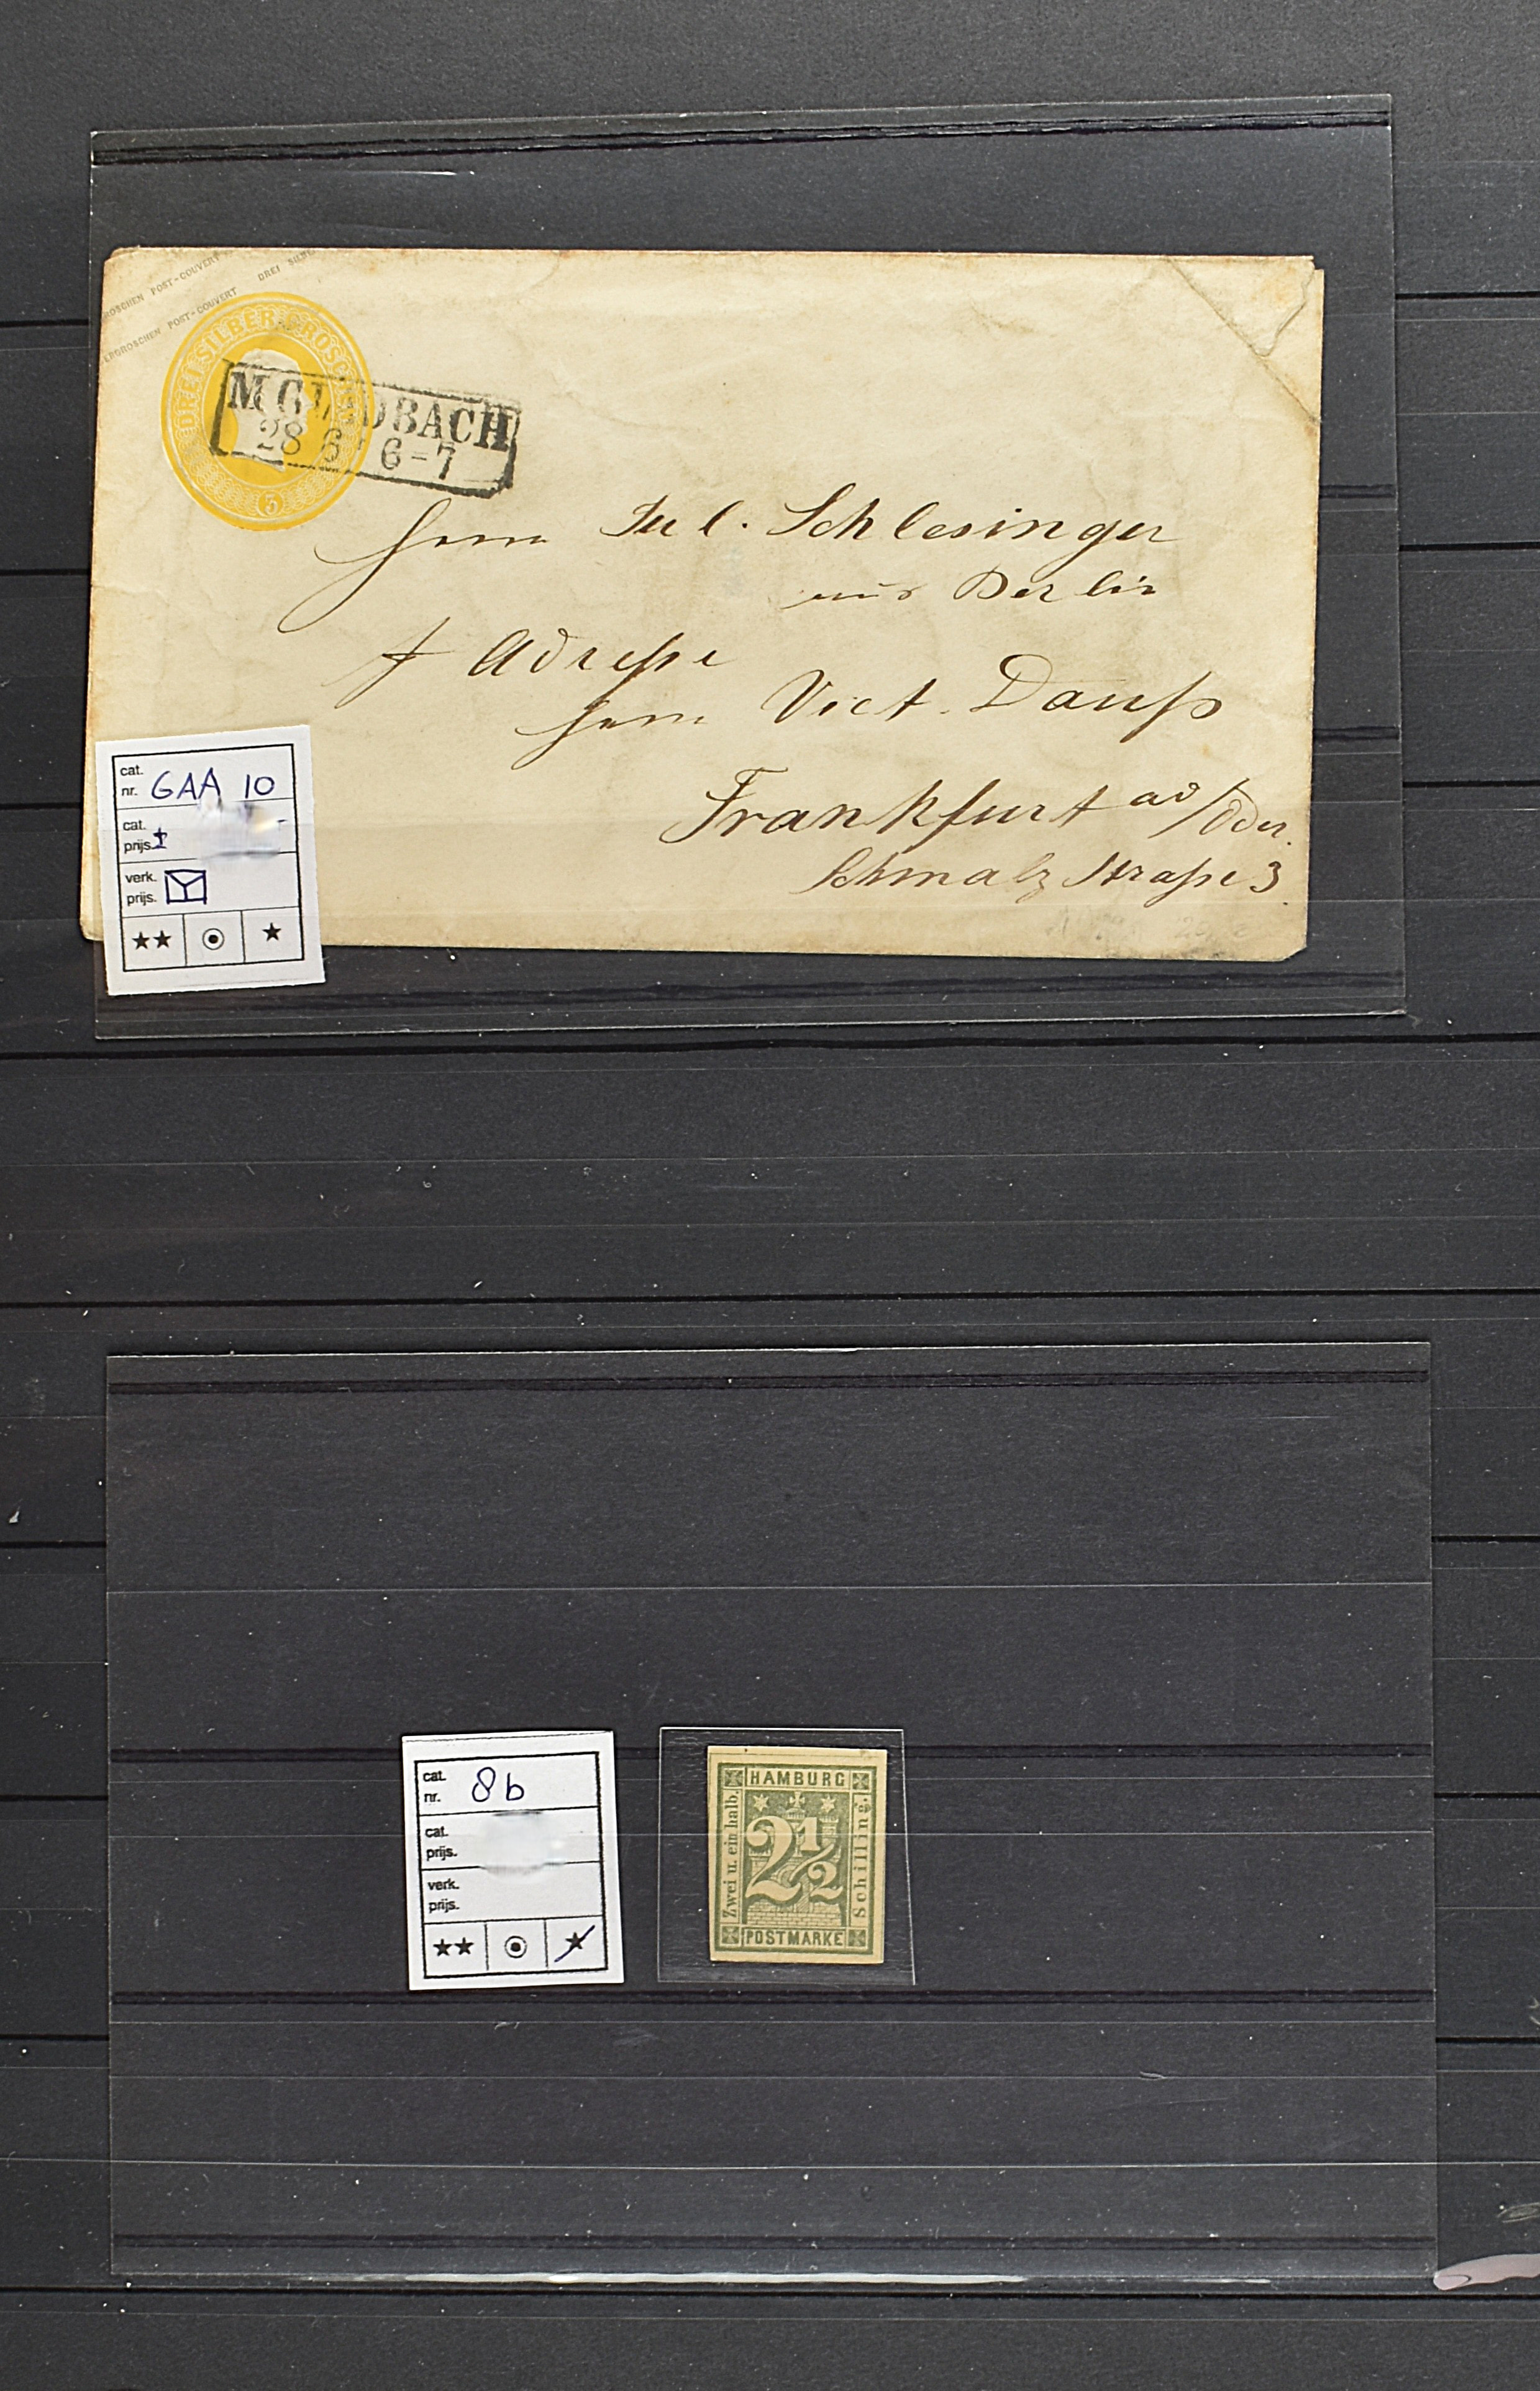 ROSCHEN POST-COUVERT DREI SILBE
ERGROSCHEN POST-COUVERT
DREI SILBER GROSCHEN
3
M. GLADBACH
28 6 6-7
Herrn Jul. Schlesinger
aus Berlin
Adresse
Herrn Vict. Dauß
Frankfurt a/d Oder.
Schmalz Straße 3.
cat.
nr. GAA 10
cat.
prijs. ±
verk.
prijs.
★★ ⊙ ★
cat.
nr. 8b
cat.
prijs.
verk.
prijs.
★★ ⊙ ★
HAMBURG
Zwei u. ein halb.
2½
Schilling.
POSTMARKE